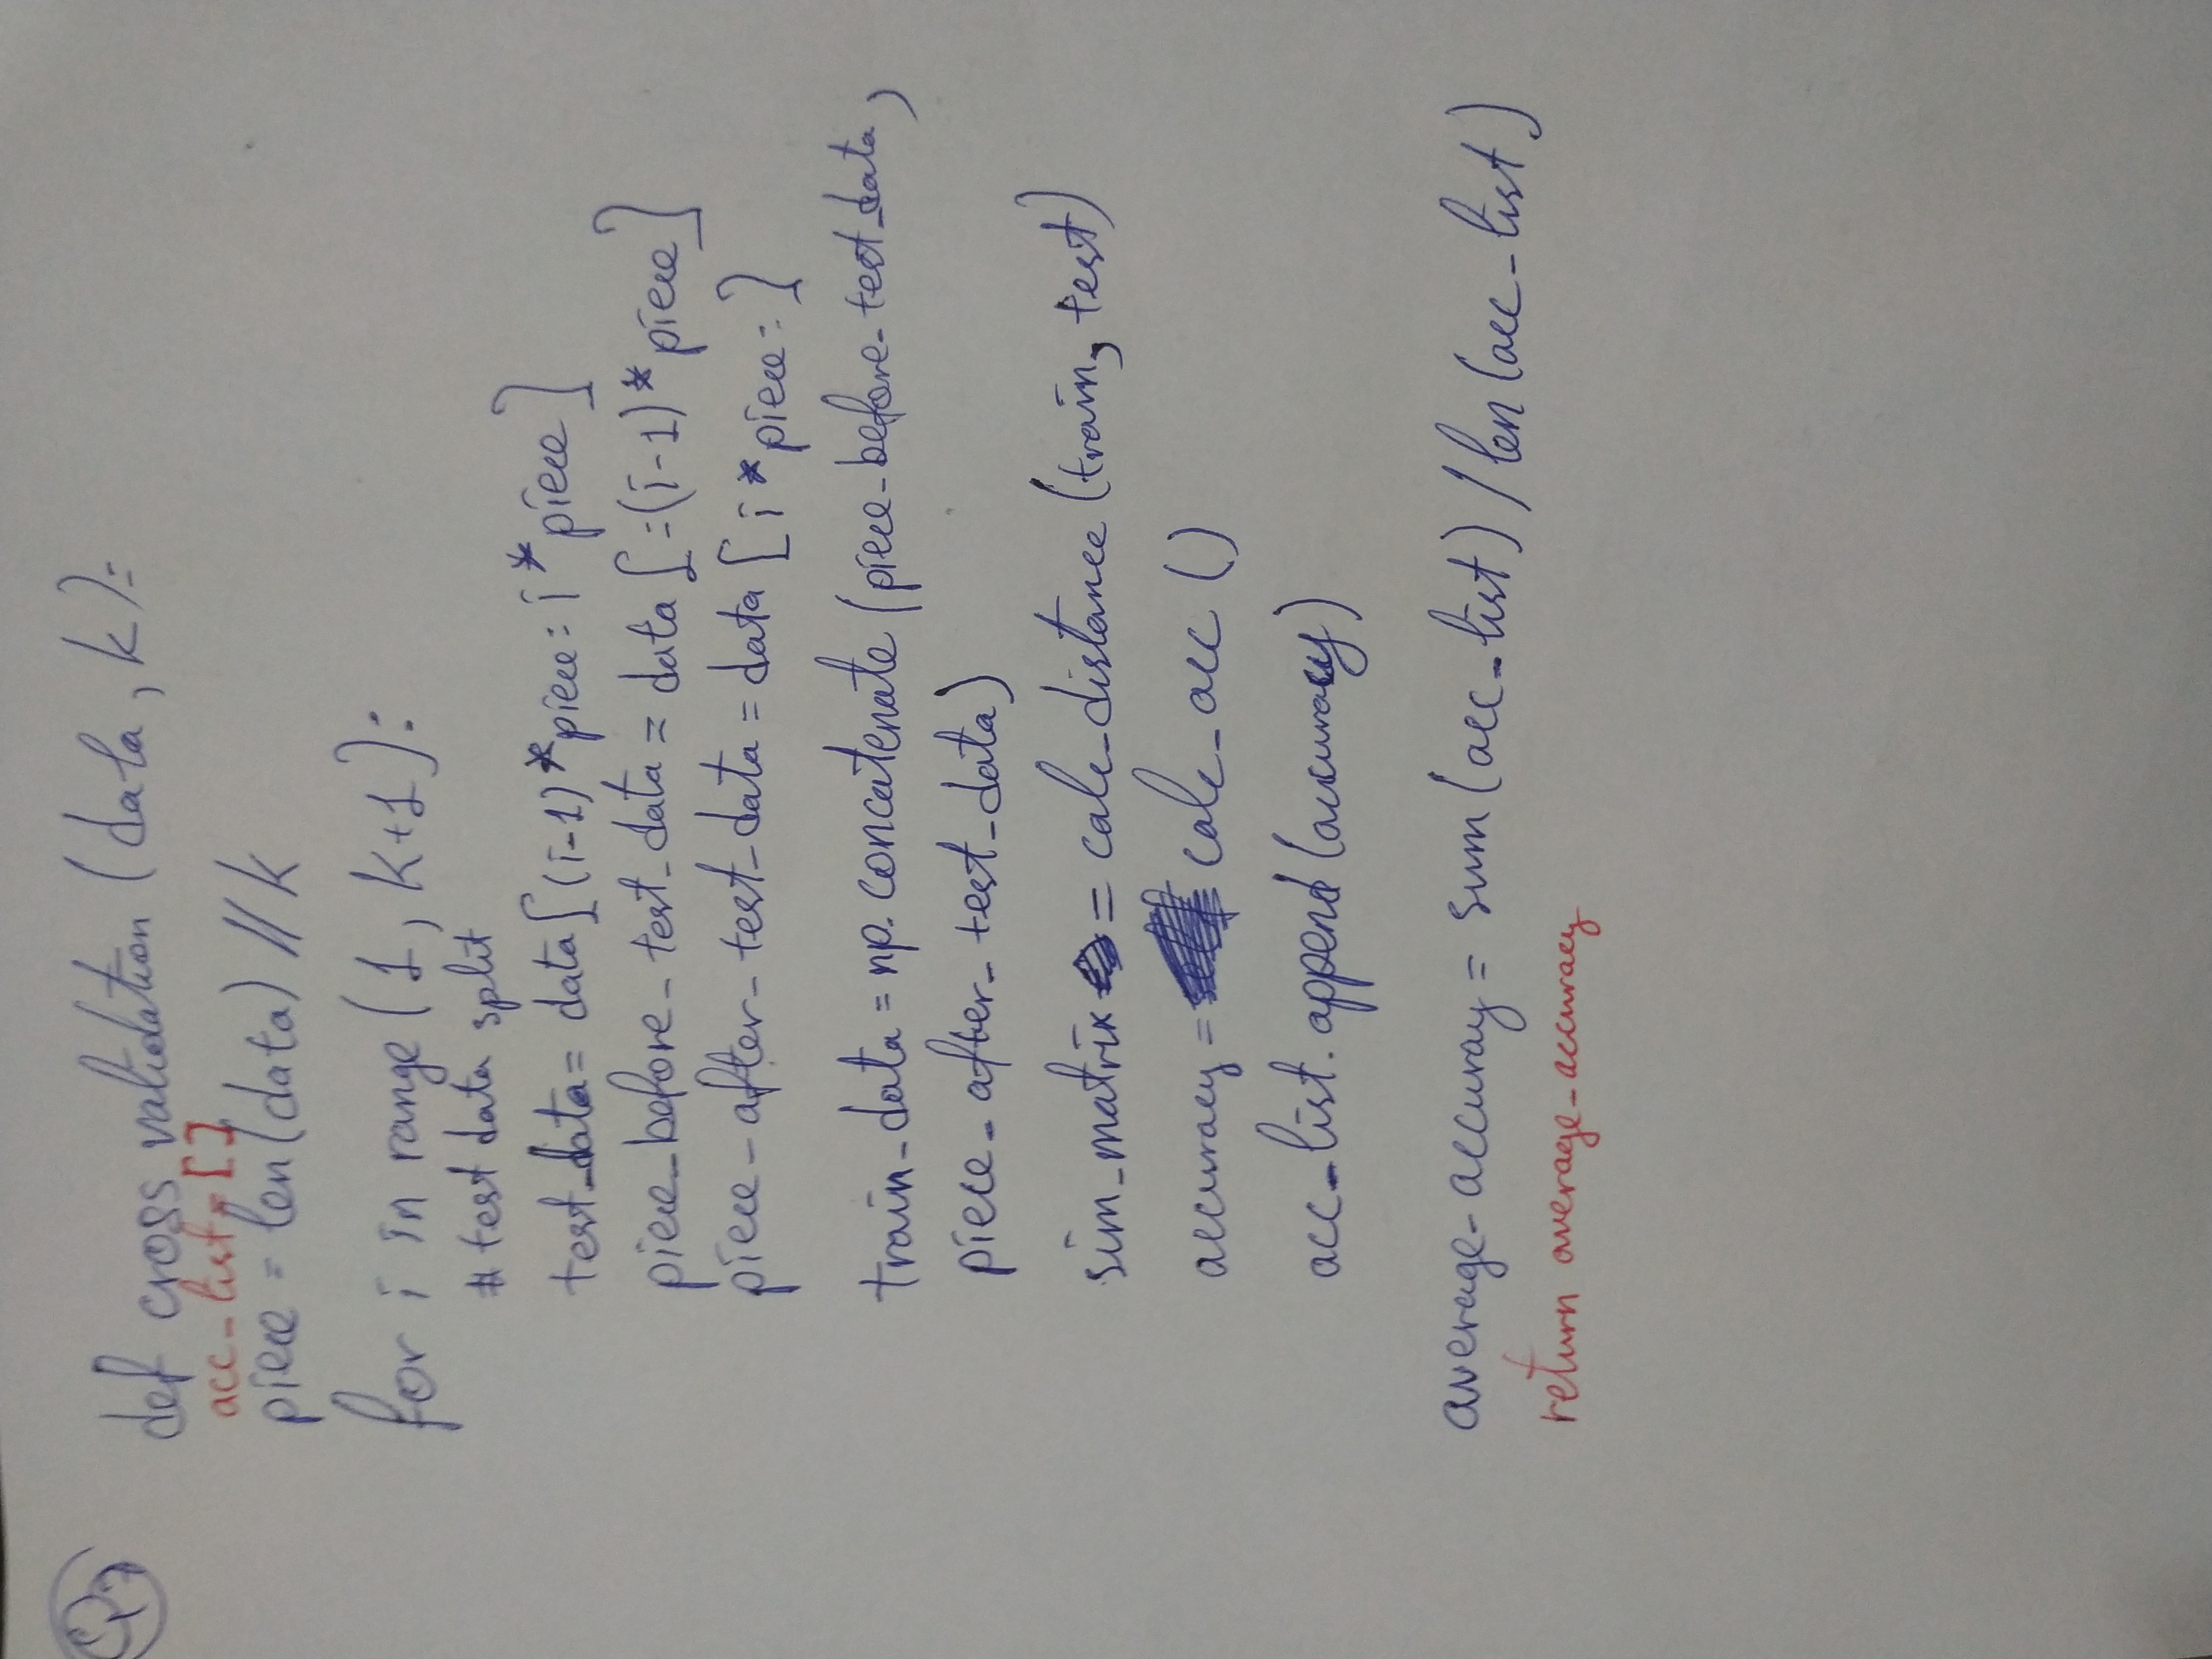 Q7
def cross validation (data, k):
acc_list = []
piece = len(data) // k
for i in range (1, k+1):
# test data split
test_data = data[(i-1)*piece: i*piece]
piece_before_test_data = data[:(i-1)*piece]
piece_after_test_data = data [i*piece:]
train_data = np.concatenate (piece_before_test_data,
piece_after_test_data)
sim_matrix = calc_distance (train, test)
accuracy = calc_acc ()
acc_list.append (accuracy)
average_accuray = sum (acc_list) / len (acc_list)
return average_accuracy